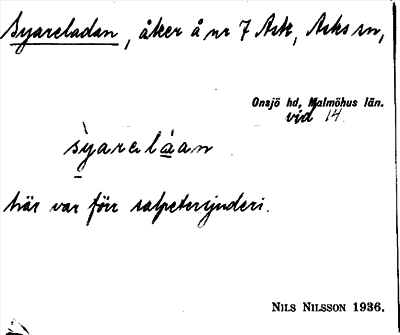 Syareladan, åker å nr 7 Ask, Asks sn,
Onsjö hd, Malmöhus län.
vid 14.
s̀yarelàan
här var förr salpetersjuderi.
NILS NILSSON 1936.